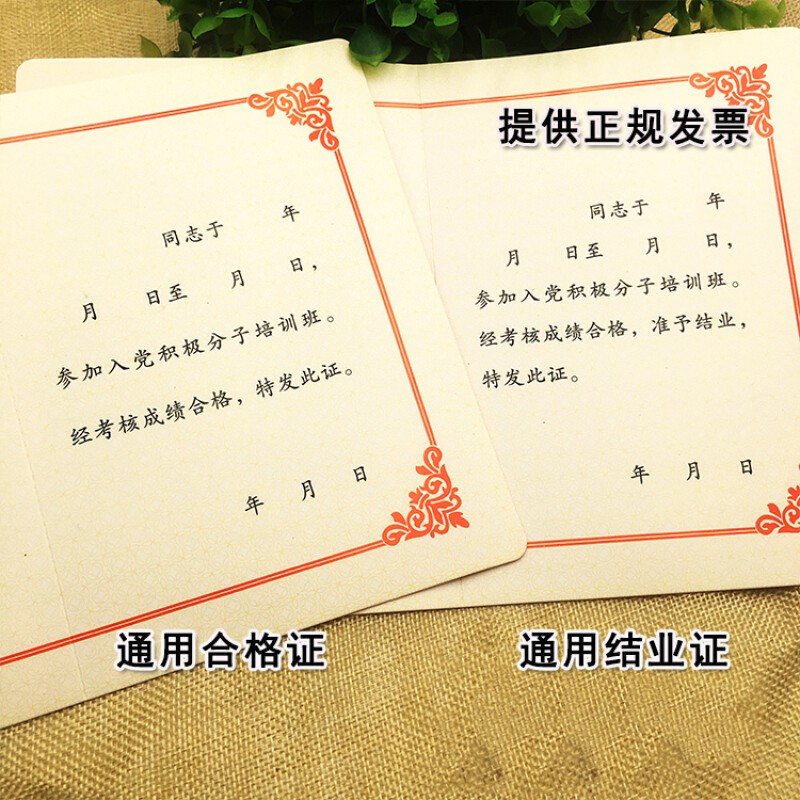 提供正规发票
同志于 年
月 日至 月 日，
参加入党积极分子培训班。
经考核成绩合格，特发此证。
年 月 日
同志于 年
月 日至 月 日，
参加入党积极分子培训班。
经考核成绩合格，准予结业，
特发此证。
年 月 日
通用合格证
通用结业证